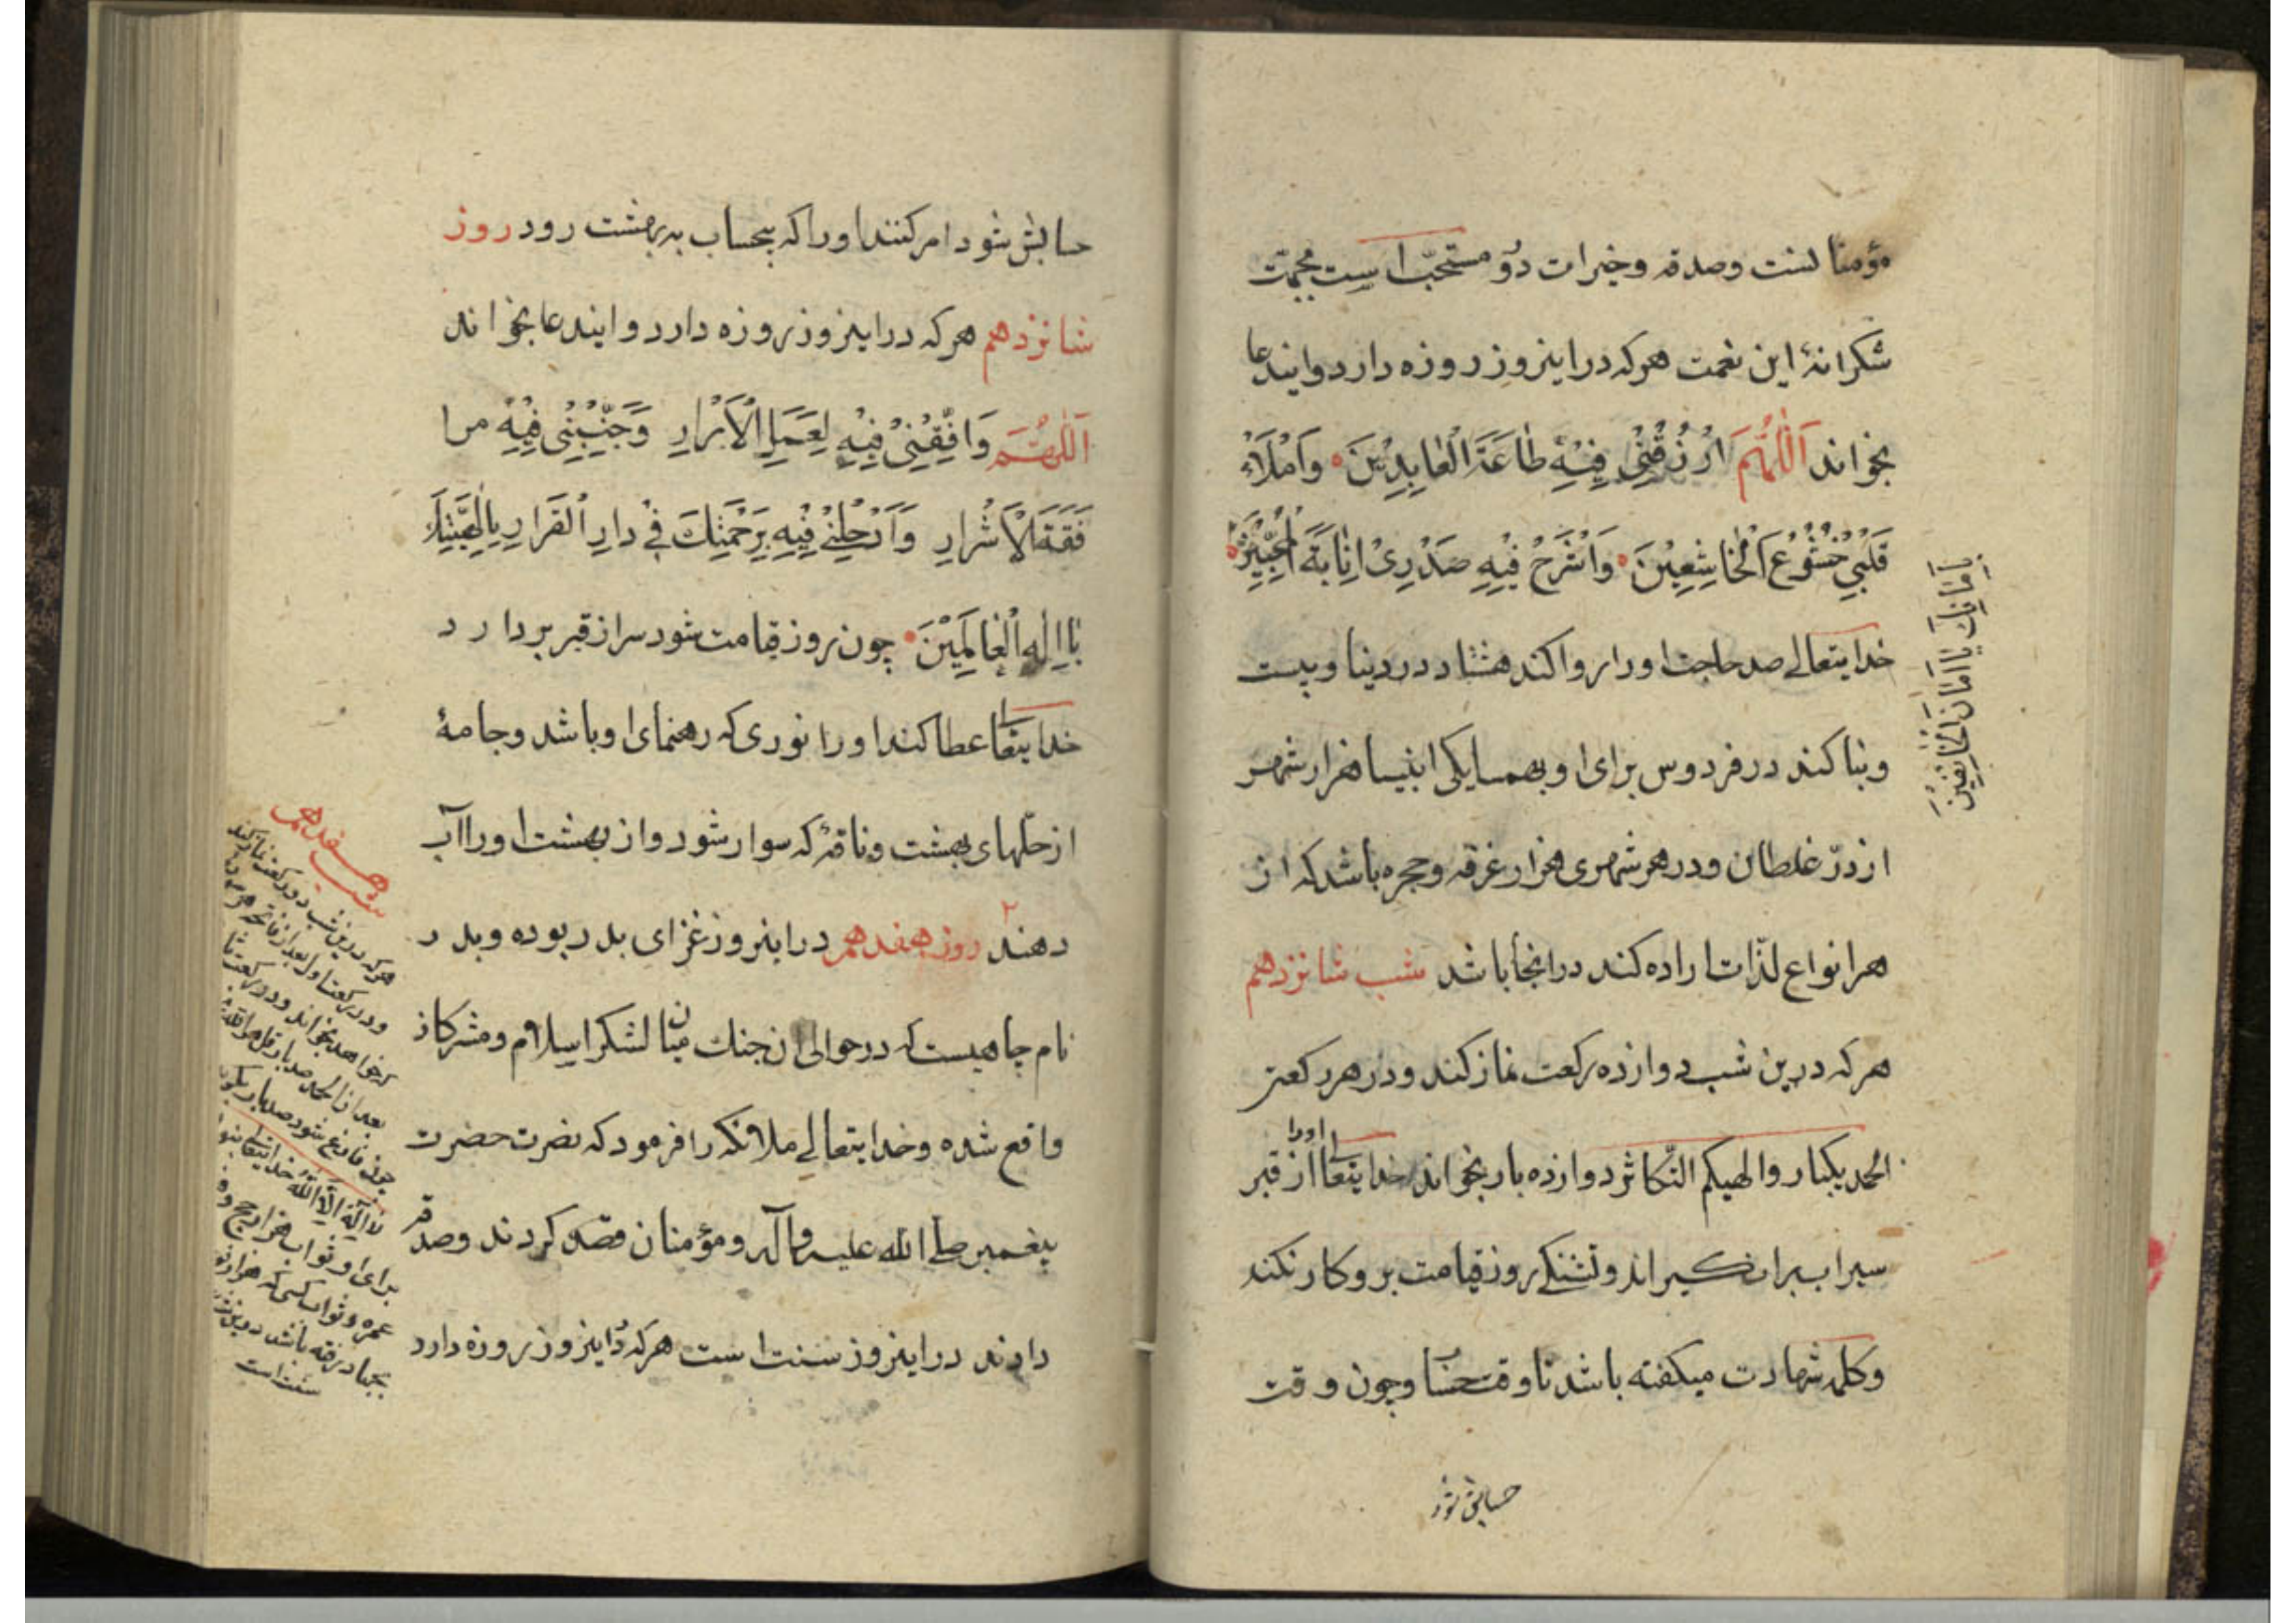 مؤمنا لنت وصدقه وخیرات دؤ مستحبّ است بجهت
شکرانهٔ این نعمت هرکه دراینروز روزه دارد وایندعا
بخواند اَللّٰهُمَّ ارْزُقْنِی فِیْهِ طَاعَةَ الْعَابِدِیْنَ وَامْلَاْء
قَلْبِی خُشُوْعَ الْخَاشِعِیْنَ وَاشْرَحْ فِیْهِ صَدْرِیْ اِنَابَةَ الْمُخْبِتِیْنَ
بِاَمَانِكَ یَا اَمَانَ الْخَائِفِیْنَ
خدایتعالی صد حاجت اورا روا کند هشتاد در دینا وبیست
وبنا کند در فردوس برای او بهمسایکی انبیا هزار شهر
از درّ غلطان ودر هر شهری هزار غرفه وحجره باشد که از
هر انواع لذّات اراده کند درانجا باشد شب شانزدهم
هرکه درین شب دوازده رکعت نماز کند ودر هر رکعتی
الحمد یکبار والهیکم التّکاثر دوازده بار بخواند خدایتعالی اورا از قبر
سیراب براند وتشنکی روز قیامت برو کار نکند
وکلمه شهادت میکفته باشد تا وقت حسا وچون وقت
حسابش شود
حسابش شود امر کنند اورا که بیحساب به بهشت رود روز
شانزدهم هرکه دراینروز روزه دارد وایندعا بخواند
اَللّٰهُمَّ وَافِّقْنِیْ فِیْهِ لِعَمَلِ الْاَبْرَارِ وَجَنِّبْنِی فِیْهِ مرا
فَقَةَ الْاَشْرَارِ وَاَدْخِلْنِیْ فِیْهِ بِرَحْمَتِكَ فِیْ دَارِ الْقَرَارِ بِاِلٰهِیَّتِكَ
یَا اِلٰهَ الْعَالَمِیْنَ چون روز قیامت شود سر از قبر بردارد
خدایتعالی عطا کند اورا نوری که رهنمای او باشد وجامهٔ
از حلّهای بهشت وناقهٔ که سوار شود واز بهشت اورا آب
دهند روز هفدهم دراینروز غزای بدر بوده وبدر
نام چاهیست که در حوالی ان جنك میان لشکر اسلام ومشرکان
واقع شده وخدایتعالی ملائکه را فرمود که نصرت حضرت
پیغمبر صلی الله علیه وآله ومؤمنان قصد کردند وصدقه
دادند دراینروز سنت است هرکه دراینروز روزه دارد
شب هفدهم
هرکه درین شب دو رکعت نماز کند
ودر رکعت اول بعد از فاتحه هر سوره
که خواهد بخواند ودر رکعت ثا
بعد از الحمد صد بار قل هو الله
چون فارغ شود صد بار بکوید
لا اله الا الله خدایتعالی بنو
برای او ثواب هزار حج و
عمره وثواب کسی که هزار
بجهاد رفته باشد
سنت است